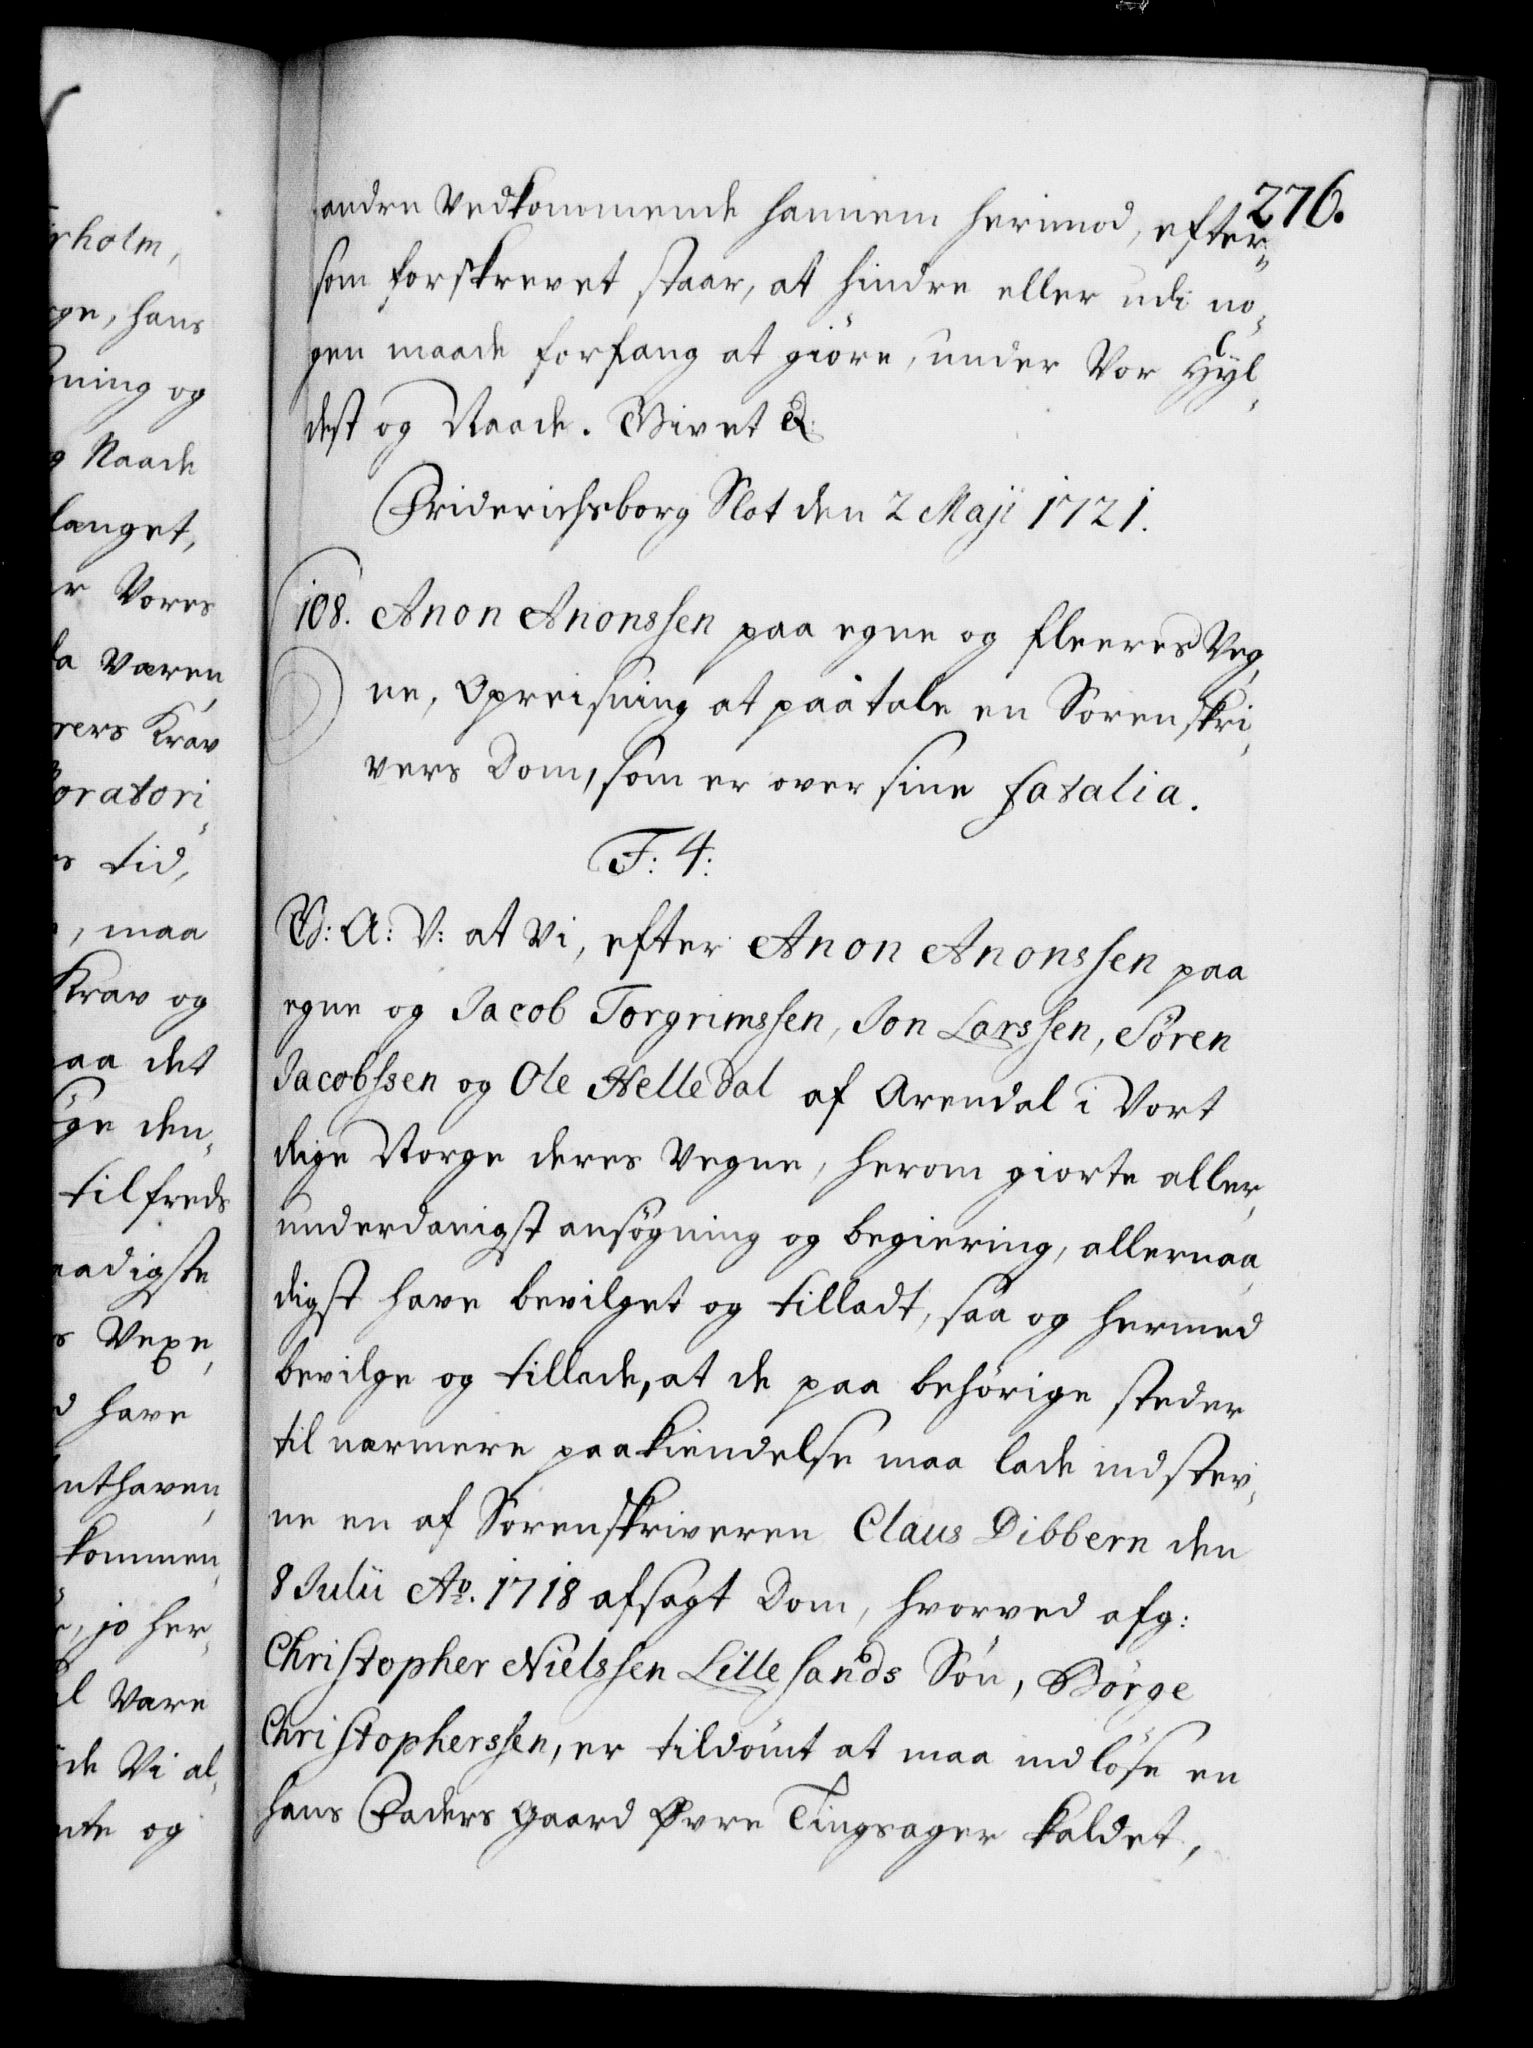 276.
andre Vedkommende hannem herimod, efter-
som forskrevet staar, at hindre eller udi no-
gen maade forfang at giöre, under Vor Hyl-
dest og Naade. Givet &
Friderichsborg Slot den 2 Maji 1721.
108. Anon Anonssen paa egne og fleeres Veg-
ne, Opreisning at paatale en Sorenskri-
vers Dom, som er over sine fatalia.
F: 4:
G: A: V: at Vi, efter Anon Anonssen paa
egne og Jacob Torgrimssen, Jon Larssen, Sören
Jacobssen og Ole Helledal af Arendal i Vort
Rige Norge deres Vegne, herom giorte aller-
underdanigst ansögning og begiering, allernaa-
digst have bevilget og tilladt, saa og hermed
bevilge og tillade, at de paa behörige steder
til nærmere paakiendelse maa lade indstev-
ne en af Sorenskriveren Claus Dibbern den
8 Julii Ao. 1718 afsagt Dom, hvorved afg:
Christopher Nielssen Lillesands Sön, Börge
Christopherssen, er tildömt at maa indlöse en
hans Faders gaard Øvre Tingsager kaldet,
rholm,
rge, hans
ning og
g Naade
langet,
r Vores
da væren-
rers Krav
oratori-
s tid,
, maa
Krav og
paa det
ge den-
tilfreds
naadigste
s Vexe-
d have
nthaven-
kommen-
, jo her-
l være
de Vi al-
nte og